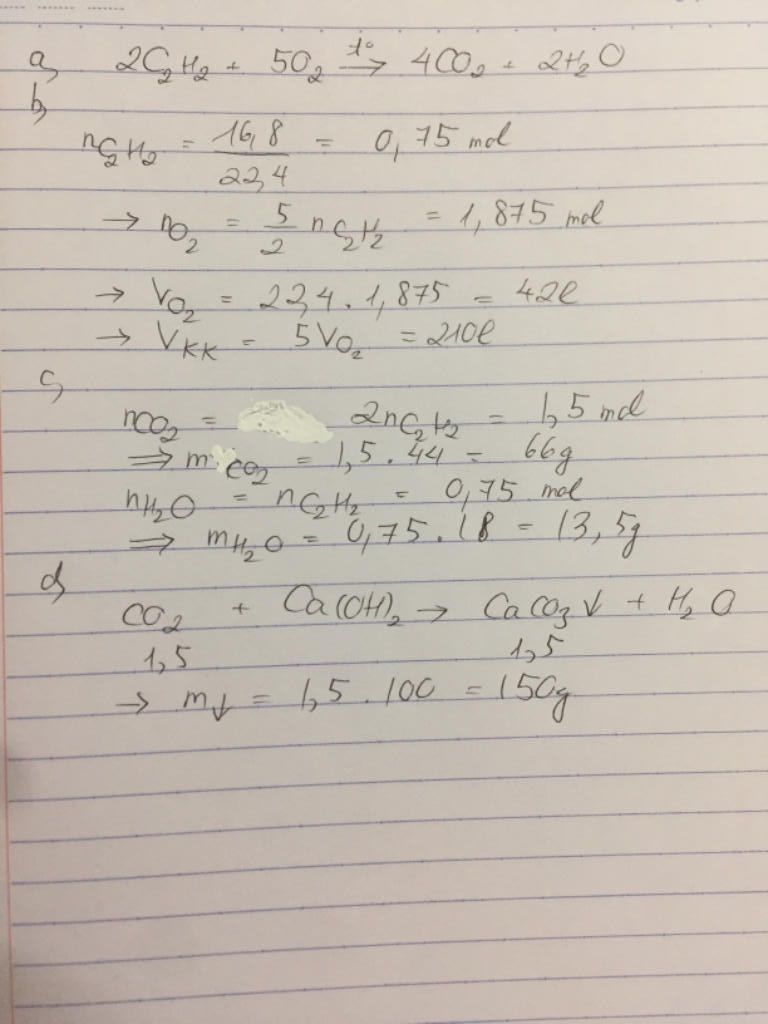 a, 2C₂H₂ + 5O₂ →(t°) 4CO₂ + 2H₂O
b,
nC₂H₂ = 16,8/22,4 = 0,75 mol
→ nO₂ = 5/2 nC₂H₂ = 1,875 mol
→ VO₂ = 22,4 . 1,875 = 42l
→ VKK = 5VO₂ = 210l
c,
nCO₂ = 2nC₂H₂ = 1,5 mol
⇒ mCO₂ = 1,5 . 44 = 66g
nH₂O = nC₂H₂ = 0,75 mol
⇒ mH₂O = 0,75 . 18 = 13,5g
d,
CO₂ + Ca(OH)₂ → CaCO₃↓ + H₂O
1,5 1,5
→ m↓ = 1,5 . 100 = 150g